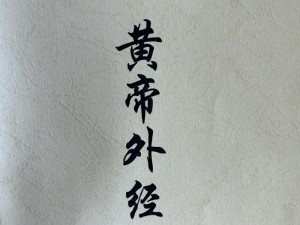 黄帝外经